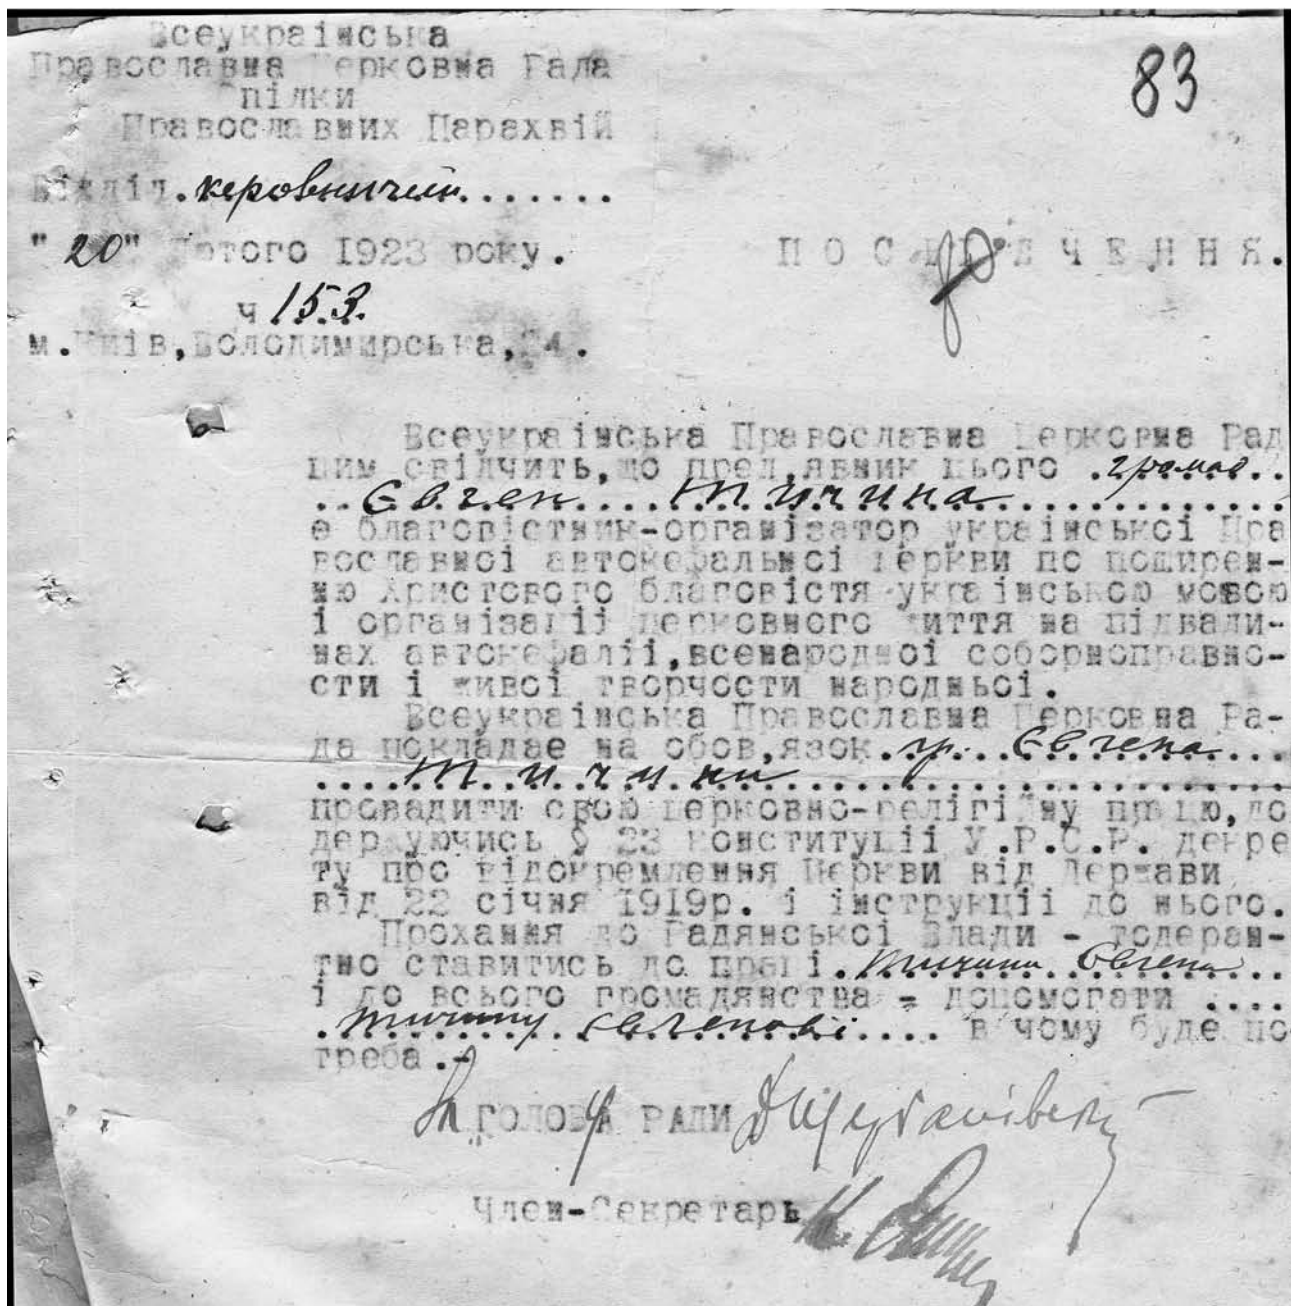 Всеукраінська
Православна Церковна Рада
Спілки
Православних Парахвій
83
Відділ.керовничий.......
"20" Лютого 1923 року.
ПОСВІДЧЕННЯ.
ч 153.
м.Киів,Володимирська,
Всеукраінська Православна Церковна Рад
цим свідчить,що пред,явник цього .громад..
..Євген....Тичина................
е благовістник-організатор украінськоі Пра
вославноі автокефальноі церкви по поширен-
ню Христового благовістя украінською мовою
і організаціі церковного життя на підвали-
нах автокефаліі,всенародноі соборноправно-
сти і живоі творчости народньоі.
Всеукраінська Православна Церковна Ра-
да покладае на обов,язок.гр...Євгена....
....Тичини......................
провадити свою церковно-релігійну працю,до
держуючись § 23 конституціі У.Р.С.Р. декре
ту про відокремлення Церкви від Держави
від 22 січня 1919р. і інструкціі до нього.
Прохання до Радянськоі Влади - толеран-
тно ставитись до праці.Тичини Євгена...
і до всього громадянства - допомогати ....
.Тичину Євгенові.... в чому буде по
треба.-
За ГОЛОВА РАДИ
Член-Секретарь